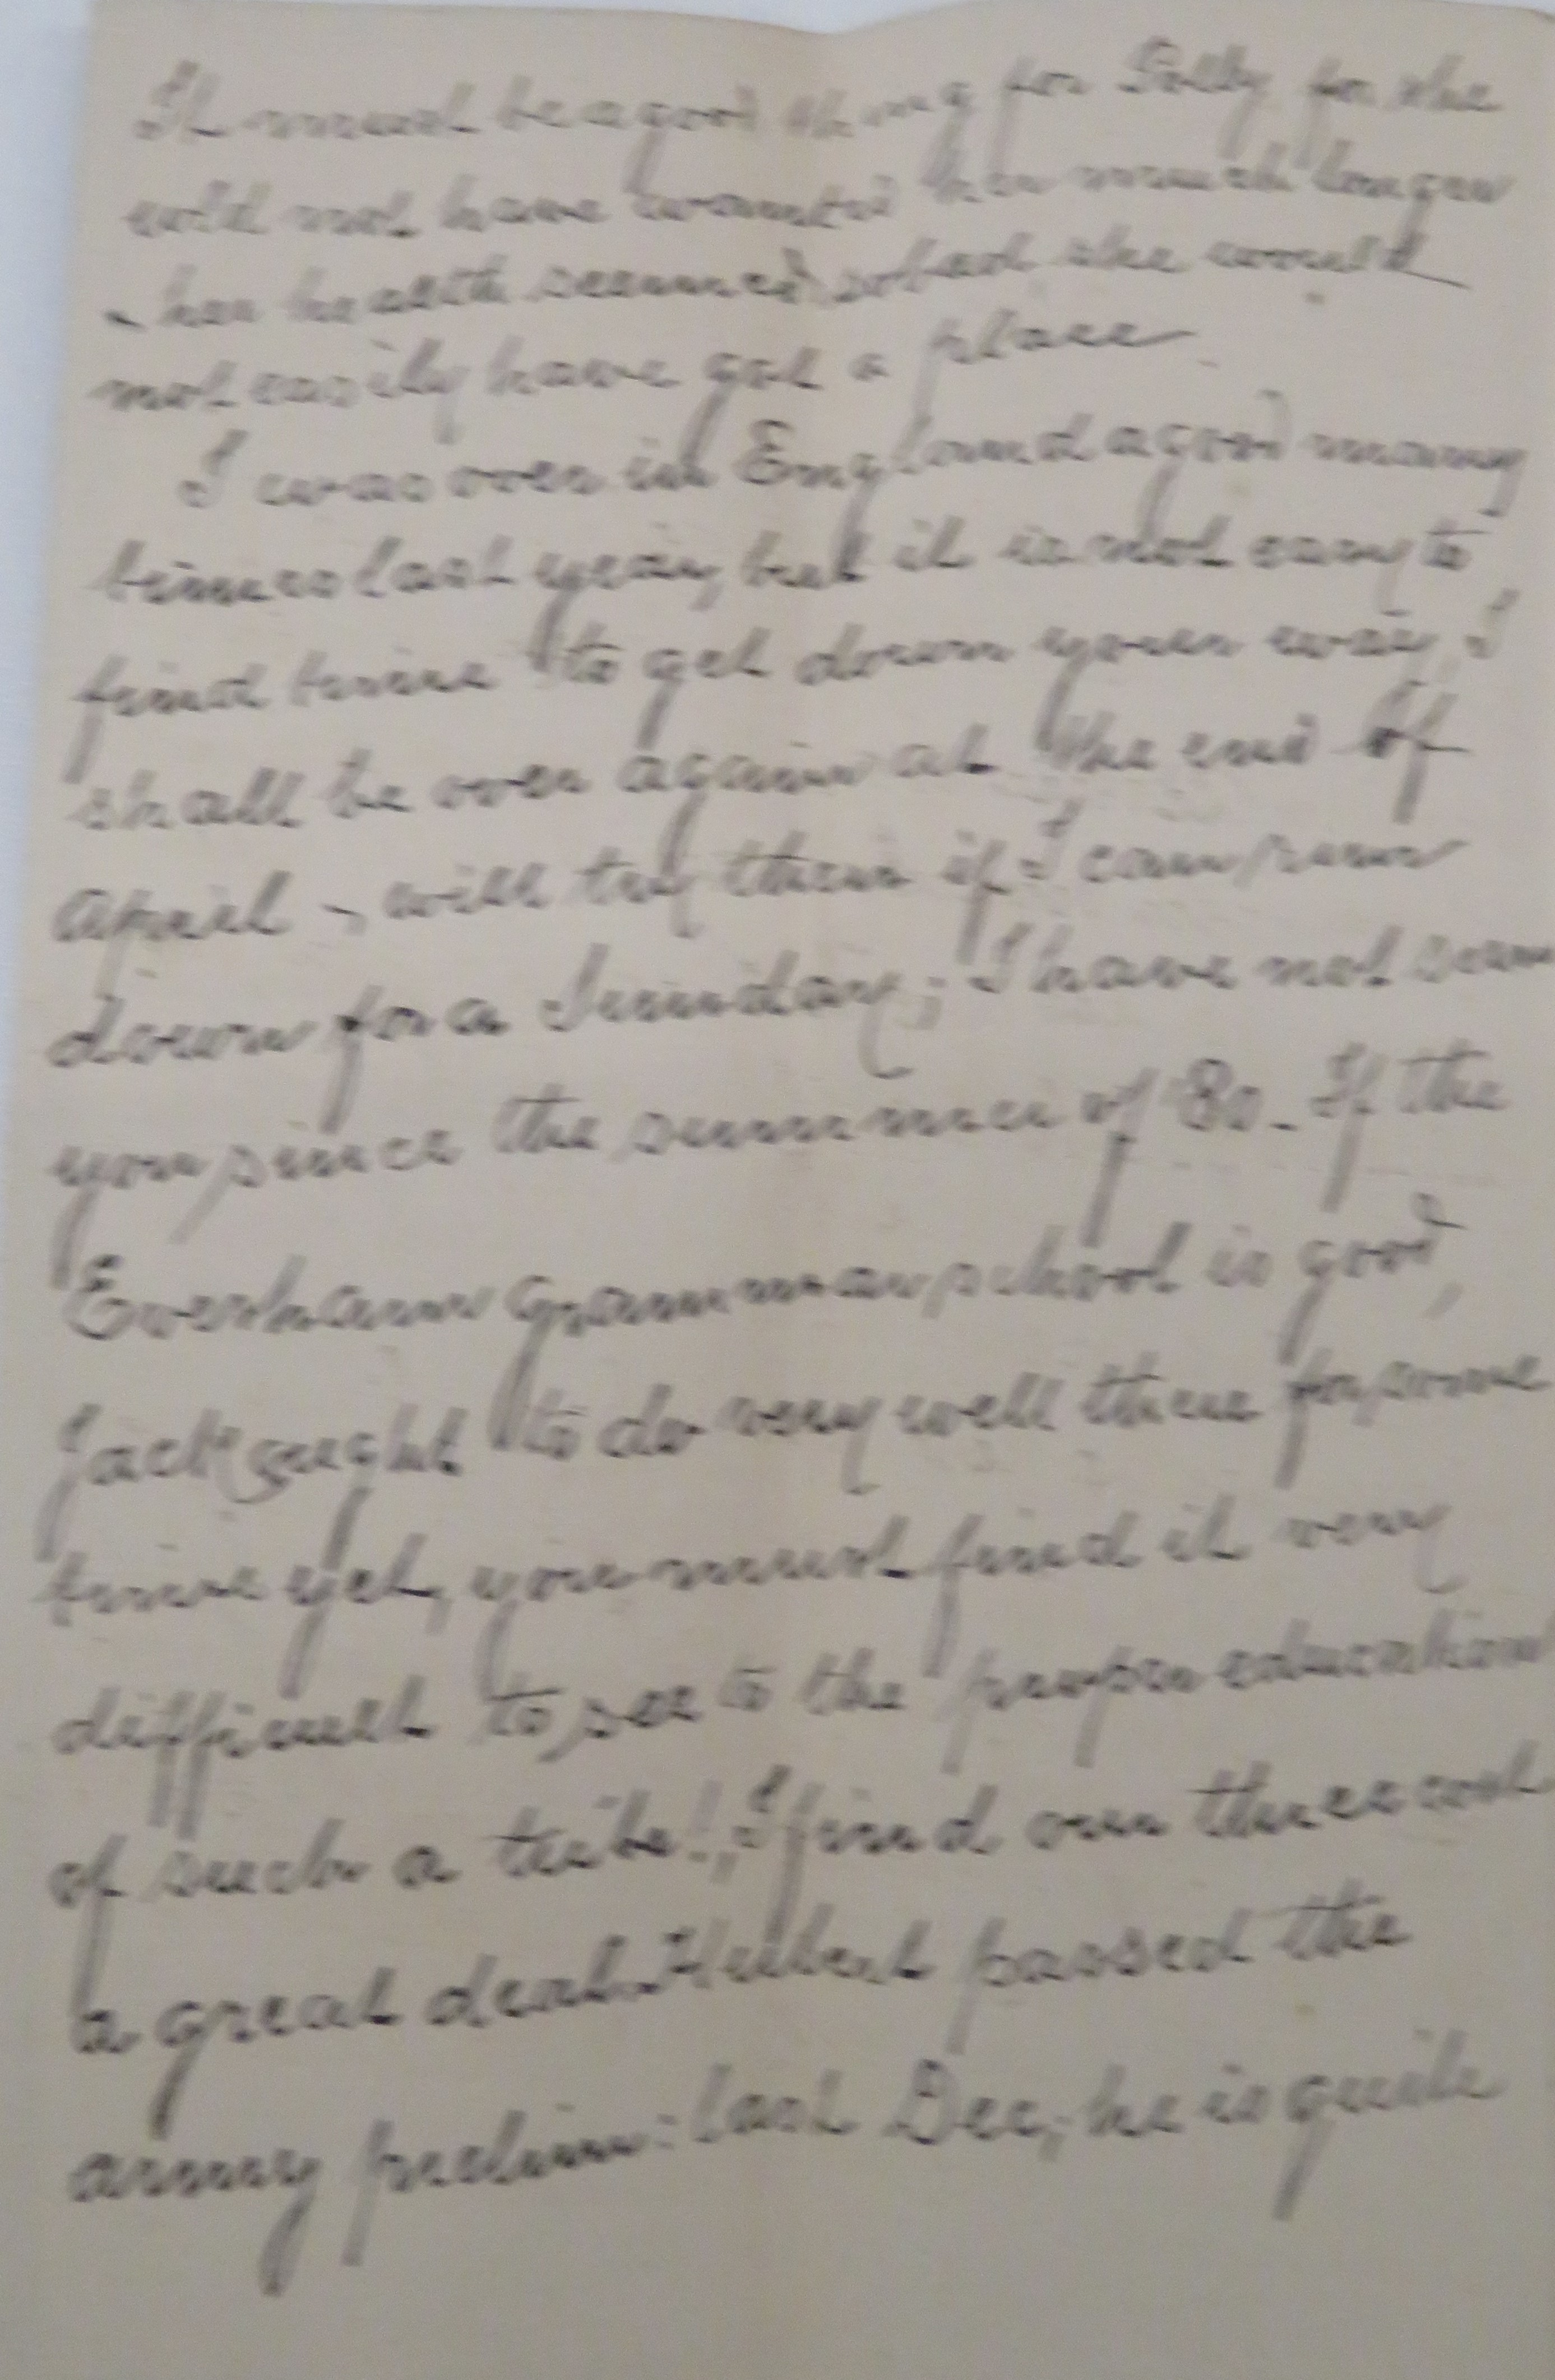 It must be a good thing for Polly for she
wld not have wanted her much longer
& her health seemed so bad she would
not easily have got a place
I was over in England a good many
times last year, but it is not easy to
find time to get down your way, I
shall be over again at the end of
April & will try then if I can run
down for a Sunday; I have not seen
you since the summer of 80. If the
Evesham Grammar school is good,
Jack ought to do very well there for some
time yet, you must find it very
difficult to see to the proper education
of such a tribe! I find our three cost
a great deal. Hubert passed the
army prelim: last Dec, he is quite